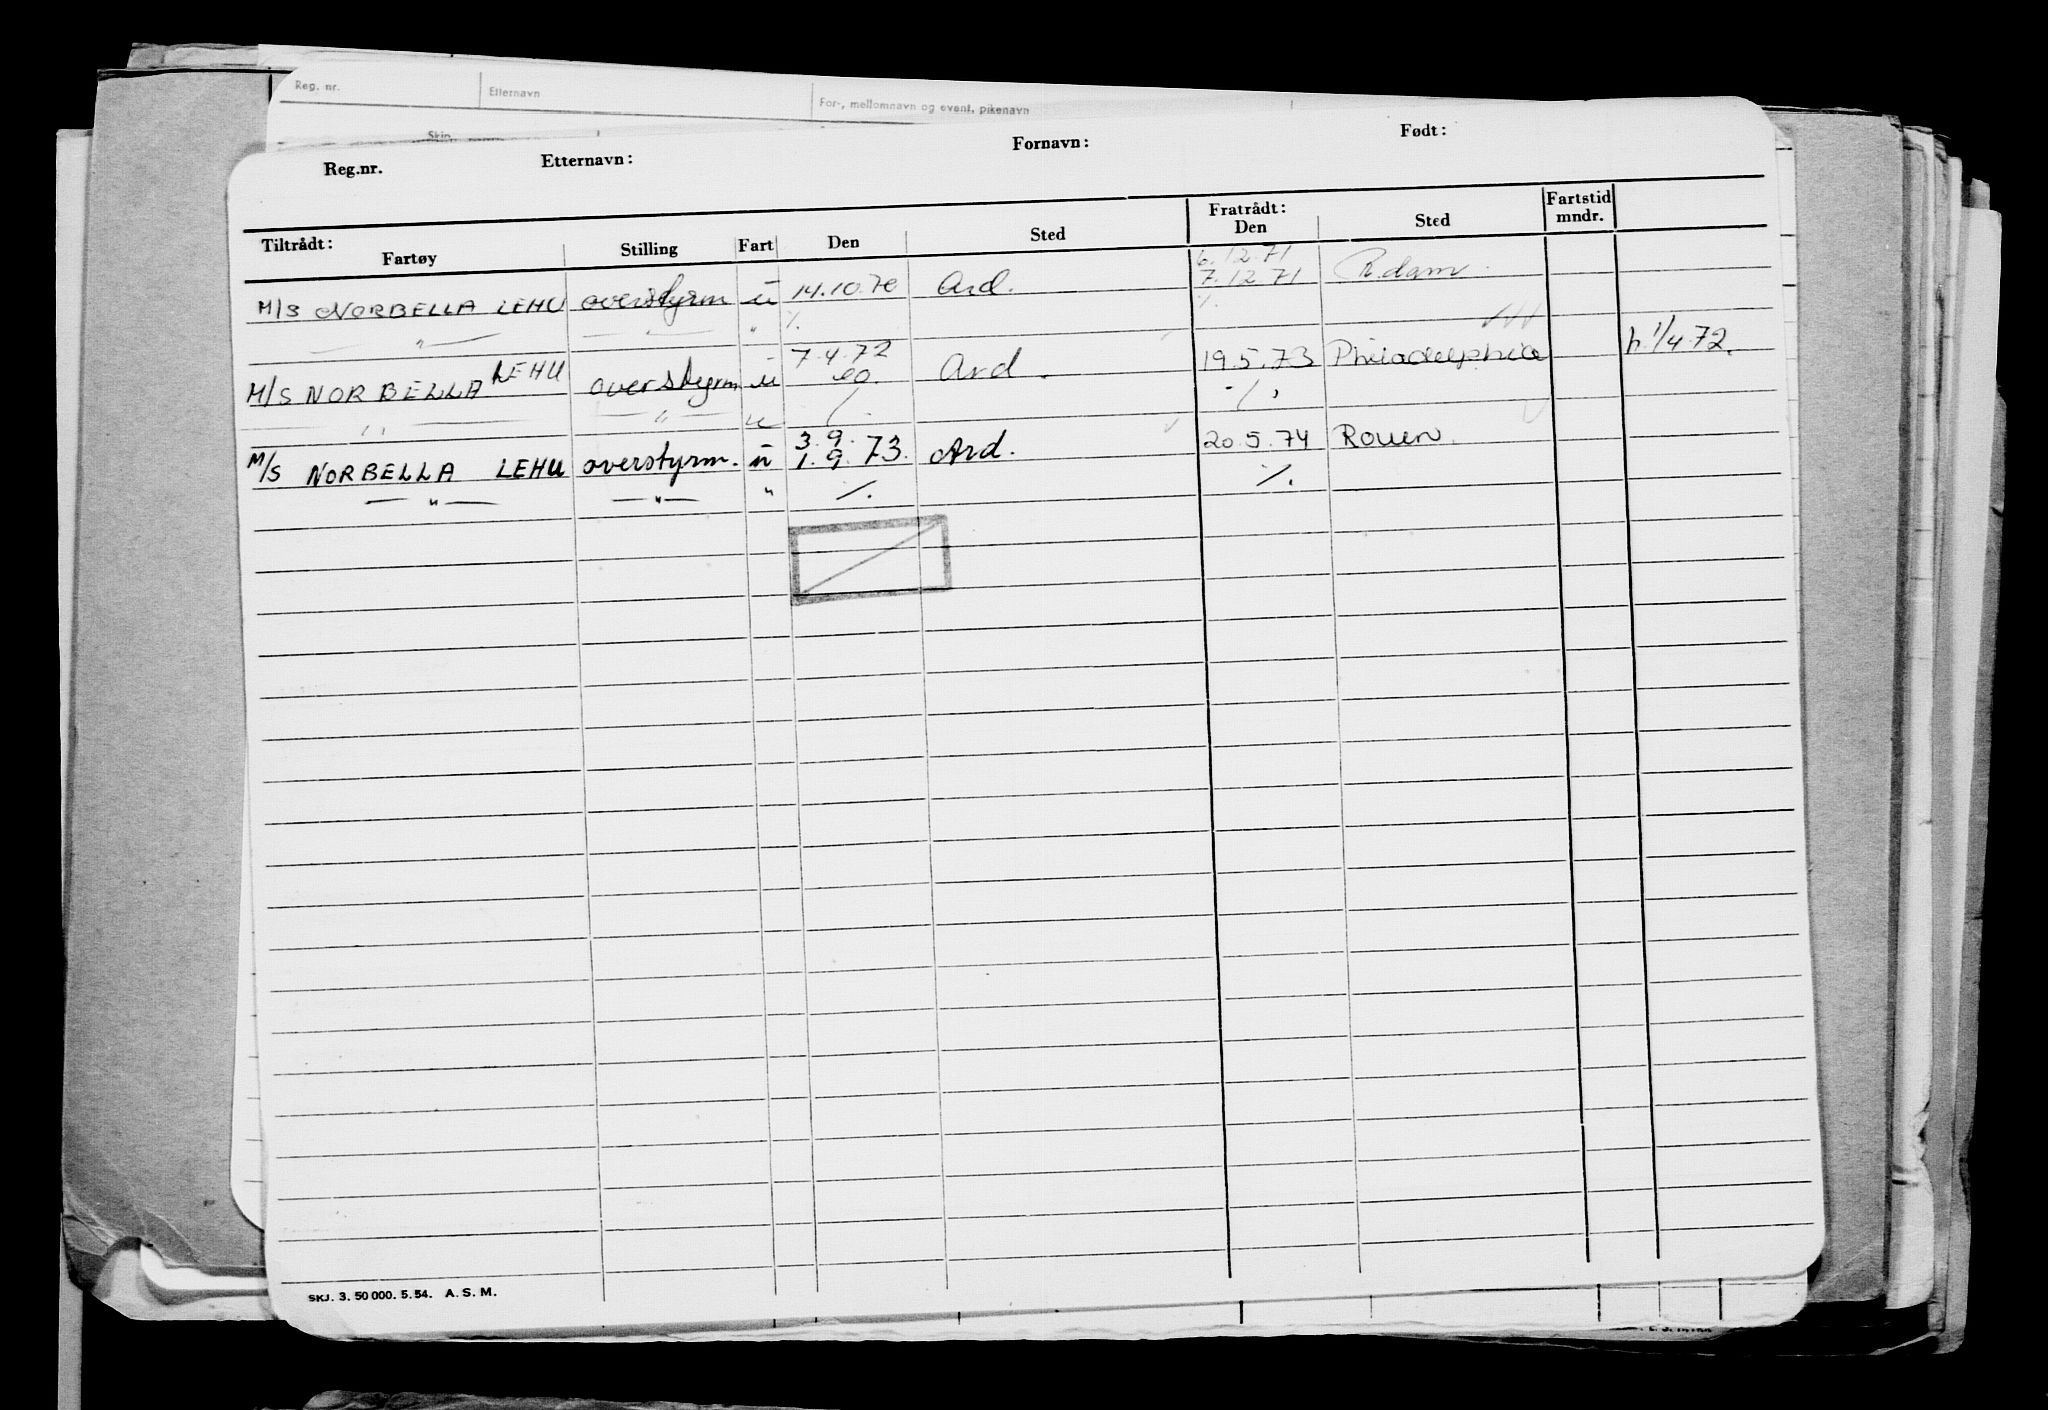 Reg. nr. Etternavn For-, mellomnavn og event. pikenavn
Skip
Reg.nr. Etternavn: Fornavn: Født:
Tiltrådt: Fratrådt: Fartstid
Fartøy Stilling Fart Den Sted Den Sted mndr.
6.12.71
M/S NORBELLA LEHU overstyrm u 14.10.70 Ard. 7.12.71 R.dam
— " — — " — " %. %.
7.4.72
M/S NORBELLA LEHU overstyrm u Ard. 19.5.73 Philadelphia h. 1/4.72.
— " — — " — u / %.
3.9.
M/S NORBELLA LEHU overstyrm. u 1.9.73. Ard. 20.5.74 Rouen.
— " — — " — " %. %.
SKJ. 3. 50 000. 5. 54. A. S. M.